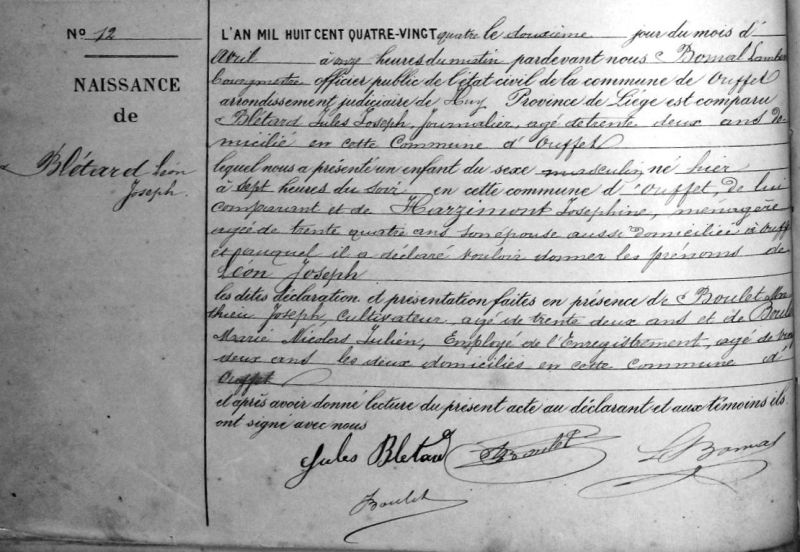 N° 12
NAISSANCE
de
Blétard Léon
Joseph.
L'AN MIL HUIT CENT QUATRE-VINGT quatre le douzième jour du mois d'
Avril à onze heures du matin pardevant nous Bomal Lambert
bourgmestre officier public de l'état civil de la commune de Ouffet
arrondissement judiciaire de Huy Province de Liége est comparu
Blétard Jules Joseph, Journalier, agé de trente deux ans do-
micilié en cette Commune d'Ouffet
lequel nous a présenté un enfant du sexe masculin né hier
à sept heures du soir en cette commune d'Ouffet, de lui
comparant et de Harzimont Josephine, ménagère
agée de trente quatre ans son épouse aussi domiciliée à Ouffet
et auquel il a déclaré vouloir donner les prénoms de
Léon Joseph
les dites déclaration et présentation faites en présence de Boulet Ma
thieu Joseph, Cultivateur, agé de trente deux ans et de Boulet
Marie Nicolas Julien, Employé de l'Enregistrement, agé de
deux ans les deux domiciliés en cette commune d'
Ouffet
et après avoir donné lecture du présent acte au déclarant et aux témoins ils
ont signé avec nous
Jules Bletard Boulet L Bomal
Boulet